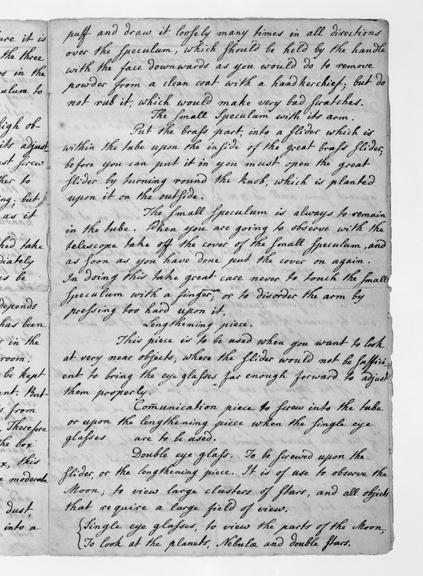 puff and draw it loosely many times in all directions
over the Speculum, which should be held by the handle
with the face downwards as you would do to remove
powder from a clean coat with a handkerchief; but do
not rub it, which would make very bad scratches.
The Small Speculum with its arm.
Put the brass part, into a slider which is
within the tube upon the inside of the great brass slider,
before you can put it in you must open the great
slider by turning round the knob, which is planted
upon it on the outside.
The small Speculum is always to remain
in the tube. When you are going to observe with the
telescope take off the cover of the Small Speculum, and
as soon as you have done put the cover on again.
In doing this take great care never to touch the small
Speculum with a finger, or to disorder the arm by
pressing too hard upon it.
Lengthening piece.
This piece is to be used when you want to look
at very near objects, where the slider would not be suffici-
ent to bring the eye glasses far enough forward to adjust
them properly.
Comunication piece to screw into the tube
or upon the lengthening piece when the single eye
glasses are to be used.
Double eye glass. To be screwed upon the
slider, or the lengthening piece. It is of use to observe the
Moon, to view large clusters of stars, and all objects
that require a large field of view.
Single eye glasses, to view the parts of the Moon,
To look at the planets, Nebulæ and double stars.
ure it is
the three
s in the
culum to
high ob-
its adjust
ust screw
her to
ng; but
as it
take
diately
be
depends
has been
r in the
room,
be kept
ant: But
s from
Therefore
the box
x, this
e moderate
dust,
e into a